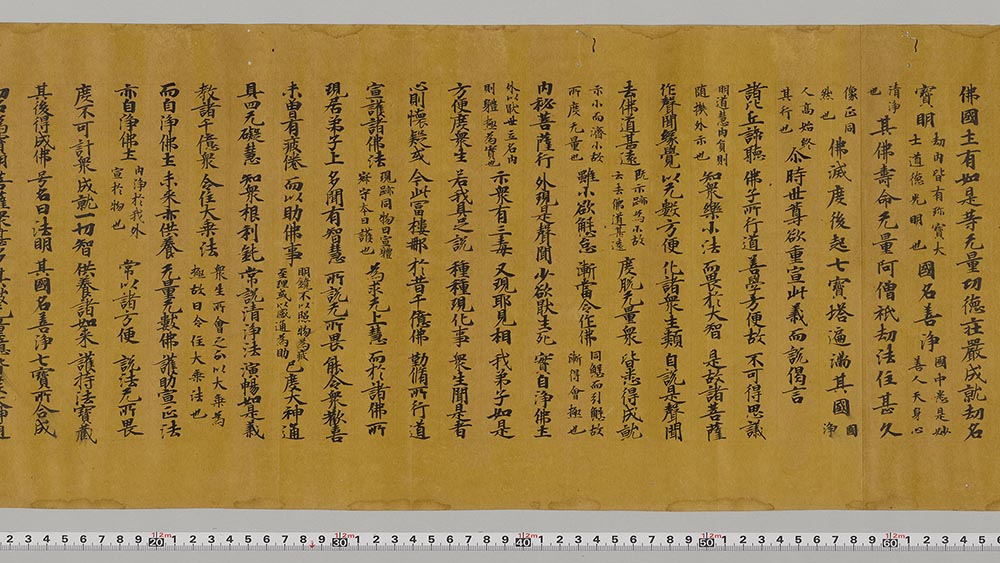 佛國土有如是等无量功德莊嚴成就劫名
寶明 劫內皆有珎寶大士道德光明也 國名善淨 國中悉是妙善人天身心
清淨也 其佛壽命无量阿僧祇劫法住甚久
像正同然也 佛滅度後起七寶塔遍滿其國 國淨
人高始終其行也 尒時世尊欲重宣此義而說偈言
諸比丘諦聽 佛子所行道 善學方便故 不可得思議
明道慧內負則隨機外示也 知衆樂小法 而畏於大智 是故諸菩薩
作聲聞緣覺 以无數方便 化諸衆生類 自說是聲聞
去佛道甚遠 既示跡為小故云去佛道甚遠 度脫无量衆 皆悉得成就
示小而濟小故所度无量也 雖小欲懈怠 漸當令作佛 同而引解故漸得會極也
內秘菩薩行 外現是聲聞 少欲猒生死 實自淨佛土
外以猒世立名內則軆極為實也 示衆有三毒 又現耶見相 我弟子如是
方便度衆生 若我具足說 種種現化事 衆生聞是者
心則懷疑或 今此富樓那 於昔千億佛 勤脩所行道
宣護諸佛法 現跡同物曰宣軆寂守本曰護也 為求无上慧 而於諸佛所
現居弟子上 多聞有智慧 所說无所畏 能令衆歡喜
未曾有疲惓 而以助佛事 明鏡不以照物為疲至理或以感通為助 已度大神通
具四无礙慧 知衆根利鈍 常說清淨法 演暢如是義
教諸千億衆 令住大乘法 衆生所會之心以大乘為極故曰令住大乘法也
而自淨佛土 未來亦供養 无量无數佛 護助宣正法
亦自淨佛土 內淨於我外宣於物也 常以諸方便 說法无所畏
度不可計衆 成就一切智 供養諸如來 護持法寶藏
其後得成佛 号名曰法明 其國名善淨 七寶所合成
劫名為寶明 菩薩衆甚多 其數无量億 皆度大神通